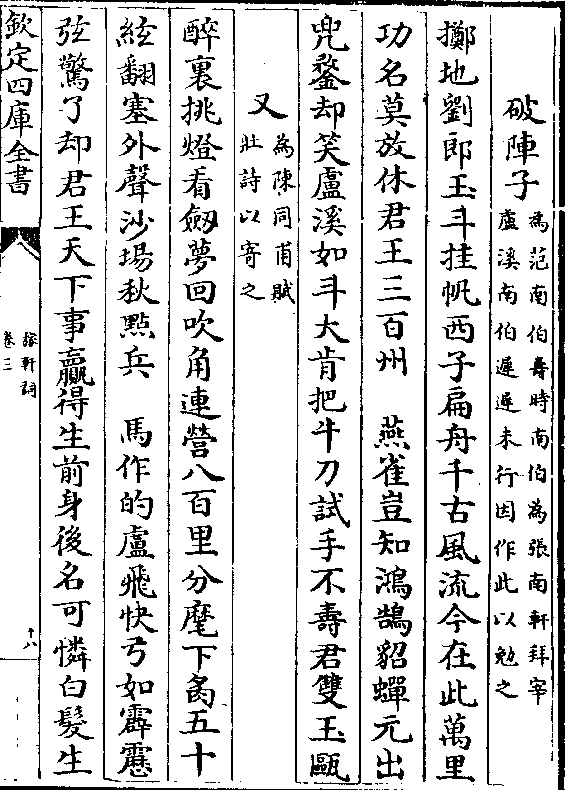 破陣子為范南伯壽時南伯為張南軒拜宰
盧溪南伯遲遲未行因作此以勉之
擲地劉郎玉斗挂帆西子扁舟千古風流今在此萬里
功名莫放休君王三百州　燕雀豈知鴻鵠貂蟬元出
兜鍪却笑盧溪如斗大肯把牛刀試手不壽君雙玉甌
又為陳同甫賦
壯詩以寄之
醉裏挑燈看劔夢回吹角連營八百里分麾下炙五十
絃翻塞外聲沙場秋㸃兵　馬作的盧飛快弓如霹靂
弦驚了却君王天下事贏得生前身後名可憐白髮生
欽定四庫全書
稼軒詞
卷三
十八